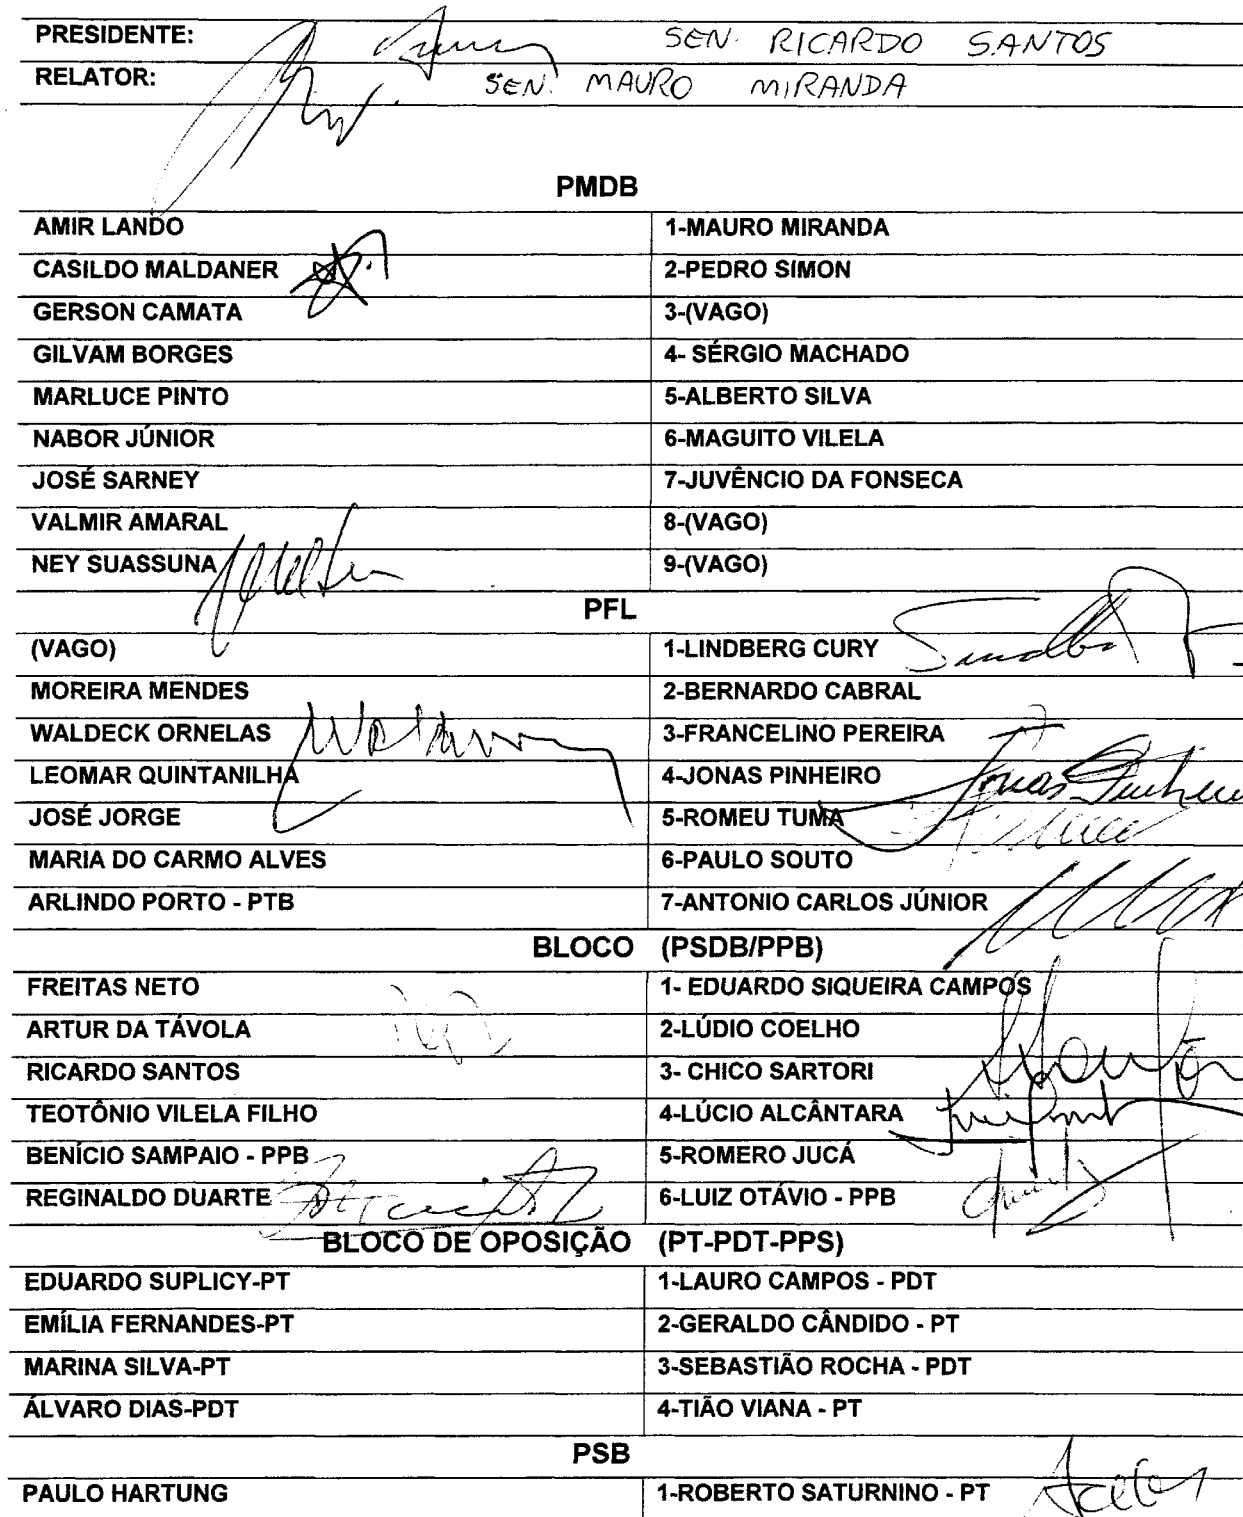 PRESIDENTE: SEN. RICARDO SANTOS
RELATOR: SEN. MAURO MIRANDA
PMDB
AMIR LANDO 1-MAURO MIRANDA
CASILDO MALDANER 2-PEDRO SIMON
GERSON CAMATA 3-(VAGO)
GILVAM BORGES 4- SÉRGIO MACHADO
MARLUCE PINTO 5-ALBERTO SILVA
NABOR JÚNIOR 6-MAGUITO VILELA
JOSÉ SARNEY 7-JUVÊNCIO DA FONSECA
VALMIR AMARAL 8-(VAGO)
NEY SUASSUNA 9-(VAGO)
PFL
(VAGO) 1-LINDBERG CURY
MOREIRA MENDES 2-BERNARDO CABRAL
WALDECK ORNELAS 3-FRANCELINO PEREIRA
LEOMAR QUINTANILHA 4-JONAS PINHEIRO Jonas Pinheiro
JOSÉ JORGE 5-ROMEU TUMA
MARIA DO CARMO ALVES 6-PAULO SOUTO
ARLINDO PORTO - PTB 7-ANTONIO CARLOS JÚNIOR
BLOCO (PSDB/PPB)
FREITAS NETO 1- EDUARDO SIQUEIRA CAMPOS
ARTUR DA TÁVOLA 2-LÚDIO COELHO
RICARDO SANTOS 3- CHICO SARTORI
TEOTÔNIO VILELA FILHO 4-LÚCIO ALCÂNTARA
BENÍCIO SAMPAIO - PPB 5-ROMERO JUCÁ
REGINALDO DUARTE 6-LUIZ OTÁVIO - PPB
BLOCO DE OPOSIÇÃO (PT-PDT-PPS)
EDUARDO SUPLICY-PT 1-LAURO CAMPOS - PDT
EMÍLIA FERNANDES-PT 2-GERALDO CÂNDIDO - PT
MARINA SILVA-PT 3-SEBASTIÃO ROCHA - PDT
ÁLVARO DIAS-PDT 4-TIÃO VIANA - PT
PSB
PAULO HARTUNG 1-ROBERTO SATURNINO - PT